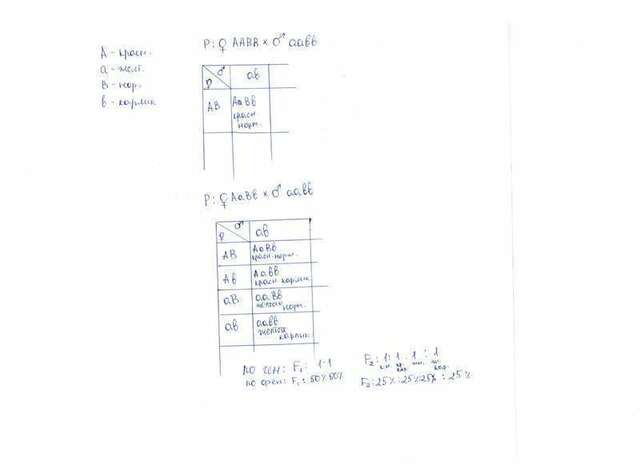 P: ♀ AABB × ♂ aaвв
A - красн.
a - желт.
B - нор.
в - карлик
♀ ♂ ав
AB AaBв
красн.
норм.
P: ♀ AaBв × ♂ aaвв
♀ ♂ ав
AB AaBв
красн. норм.
Aв Aaвв
красн. карлик
aB aaBв
желтый
норм.
aв aaвв
желтый
карлик
по ген: F₁: 1:1
F₂: 1:1:1:1
по фен: F₁: 50% 50%
F₂: 25% : 25% : 25% : 25%